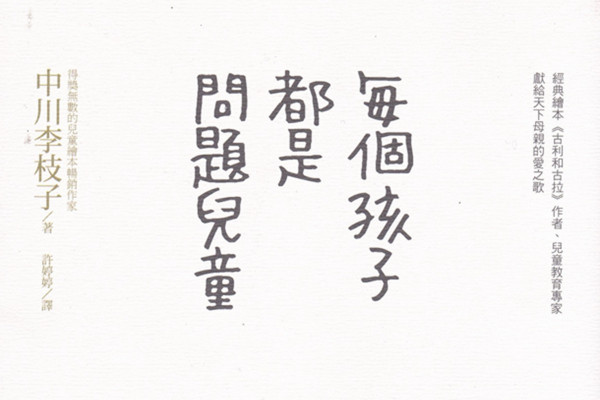 經典繪本《古利和古拉》作者、兒童教育專家
獻給天下母親的愛之歌
每個孩子
都是
問題兒童
得獎無數的兒童繪本暢銷作家
中川李枝子/著 許婷婷/譯